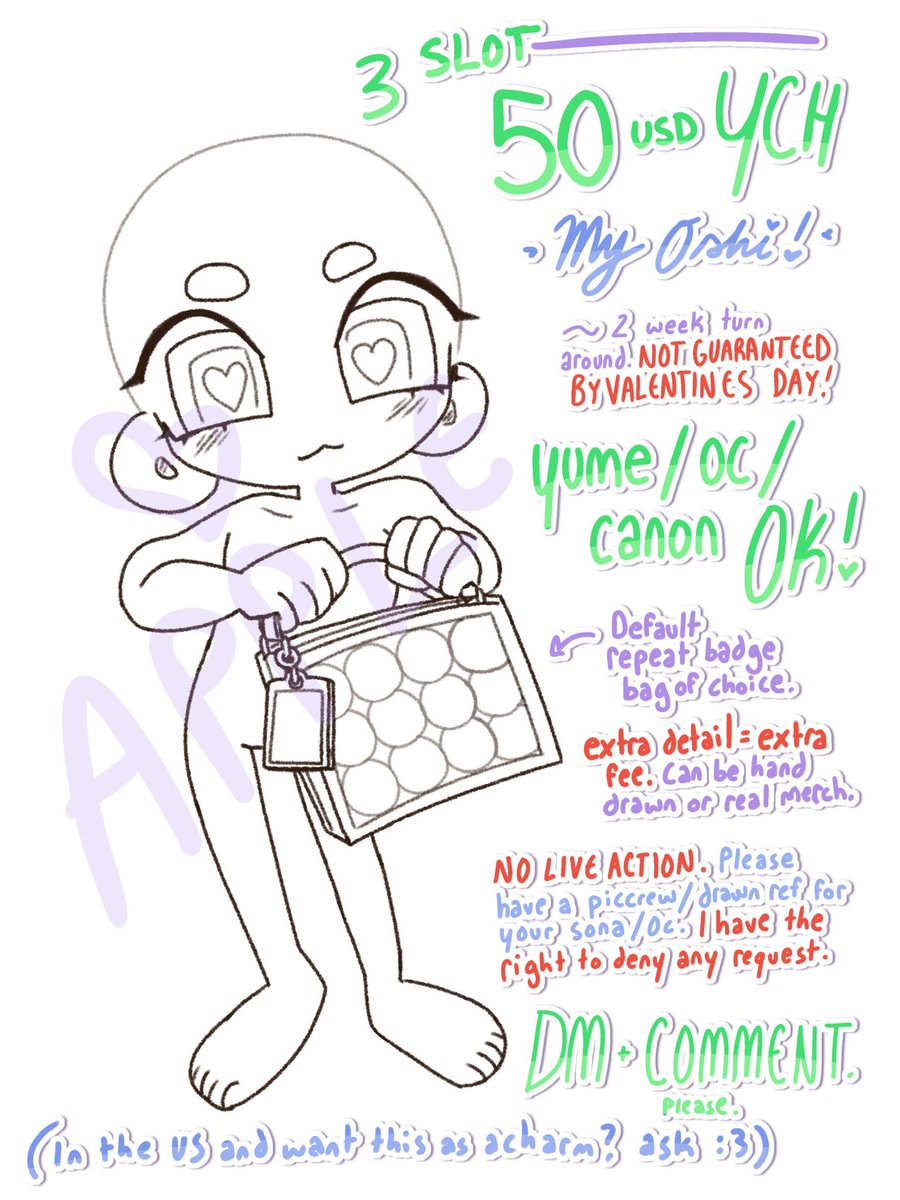 3 SLOT
50 USD YCH
My Oshi!
~ 2 week turn
around. NOT GUARANTEED
BY VALENTINES DAY!
yume/oc/
canon OK!
Default
repeat badge
bag of choice.
extra detail = extra
fee. Can be hand
drawn or real merch.
NO LIVE ACTION. Please
have a piccrew/drawn ref for
your sona/oc. I have the
right to deny any request.
DM + COMMENT.
Please.
(In the US and want this as a charm? ask :3)
APPLE